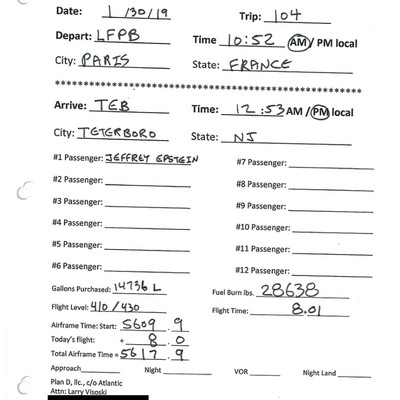 Date: 1/30/19 Trip: 104
Depart: LFPB Time 10:52 AM/ PM local
City: PARIS State: FRANCE
************************************************************
Arrive: TEB Time: 12:53 AM / PM local
City: TETERBORO State: NJ
#1 Passenger: JEFFREY EPSTEIN #7 Passenger:
#2 Passenger: #8 Passenger:
#3 Passenger: #9 Passenger:
#4 Passenger: #10 Passenger:
#5 Passenger: #11 Passenger:
#6 Passenger: #12 Passenger:
Gallons Purchased: 14736 L Fuel Burn lbs. 28638
Flight Level: 410/430 Flight Time: 8.01
Airframe Time: Start: 5609.9
Today's flight: + 8.0
Total Airframe Time = 5617.9
Approach Night VOR Night Land
Plan D, llc., c/o Atlantic
Attn: Larry Visoski